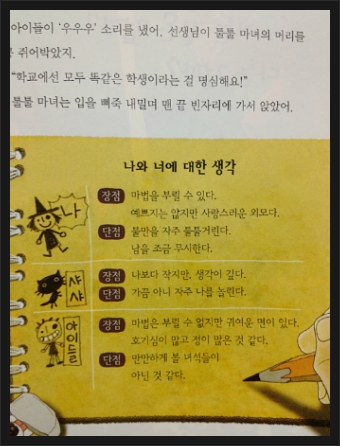 아이들이 '우우우' 소리를 냈어. 선생님이 툴툴 마녀의 머리를
쥐어박았지.
"학교에선 모두 똑같은 학생이라는 걸 명심해요!"
툴툴 마녀는 입을 삐죽 내밀며 맨 끝 빈자리에 가서 앉았어.
나와 너에 대한 생각
나
장점 마법을 부릴 수 있다.
예쁘지는 않지만 사랑스러운 외모다.
단점 불만을 자주 툴툴거린다.
남을 조금 무시한다.
샤샤
장점 나보다 작지만, 생각이 깊다.
단점 가끔 아니 자주 나를 놀린다.
아이들
장점 마법은 부릴 수 없지만 귀여운 면이 있다.
호기심이 많고 정이 많은 것 같다.
단점 만만하게 볼 녀석들이
아닌 것 같다.